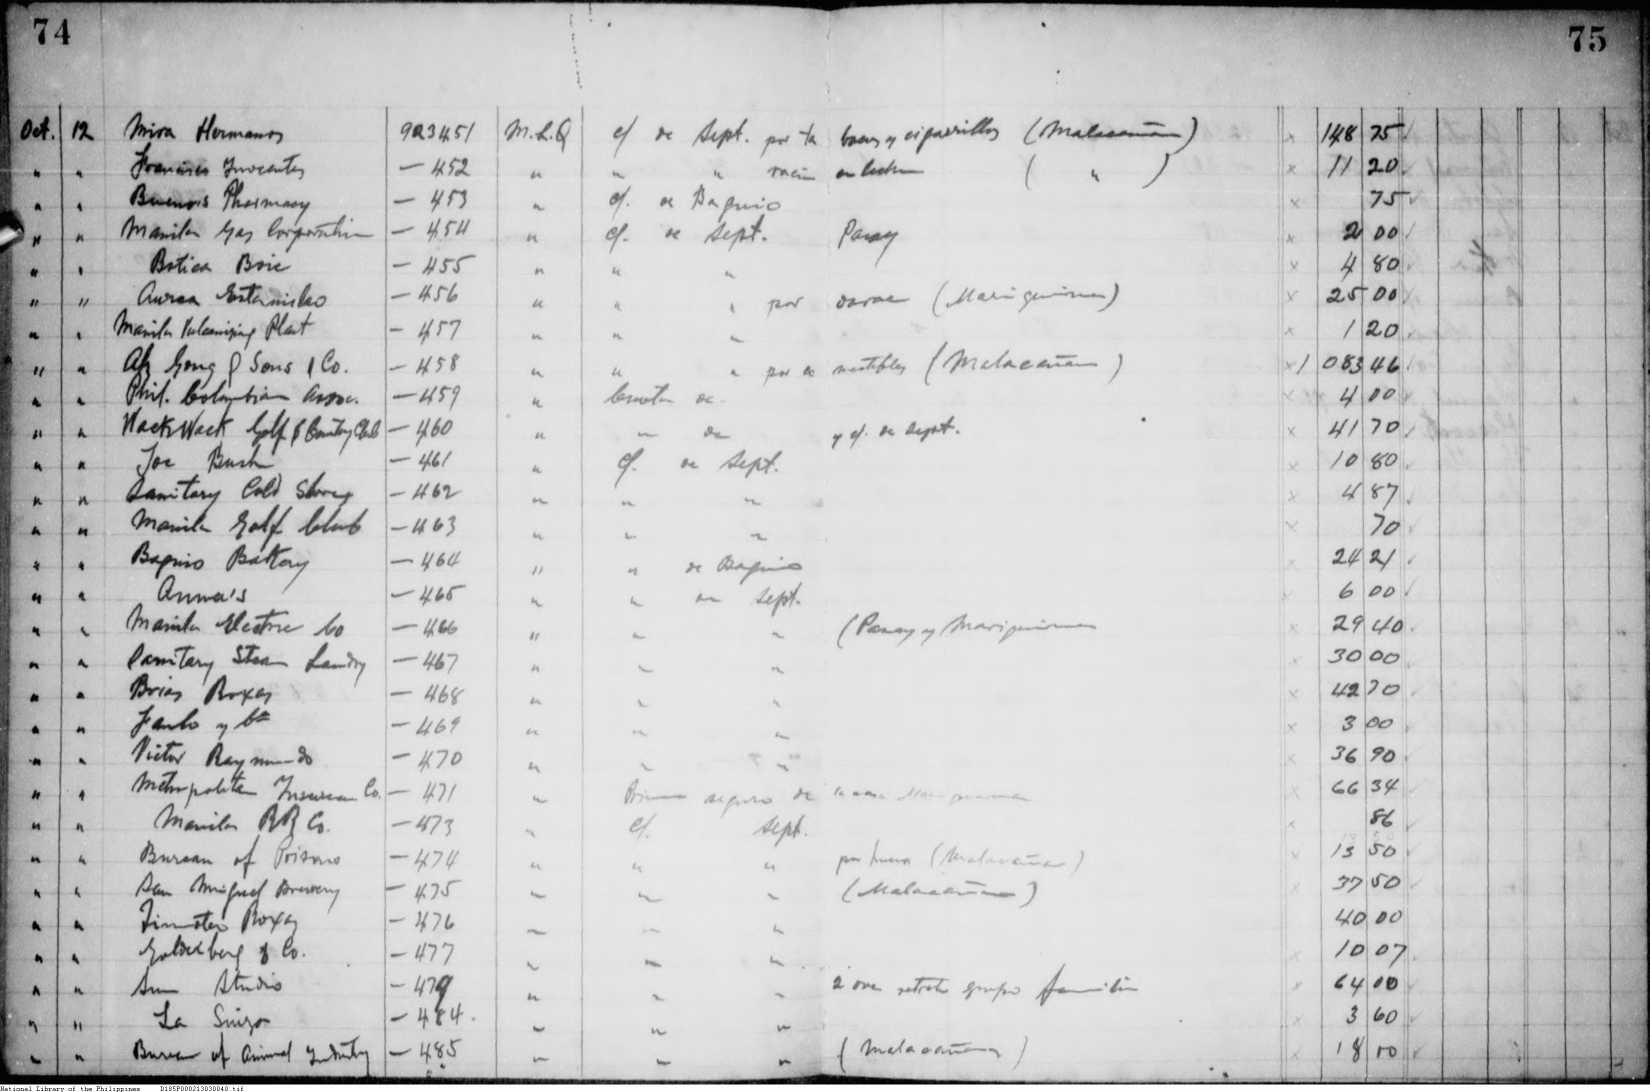 74
75
Oct. 12 Mira Hermanos 923451 M.L.Q c/ de Sept. por tabacos y cigarrillos (Malacañan) x 148 75
" " Francisco Inocentes — 452 " " " (") x 11 20
" " Buenos Pharmacy — 453 " c/. de Baguio x 75
" " Manila Gas Corporation — 454 " c/. de Sept. Pasay x 2 00
" " Botica Boie — 455 " " " x 4 80
" " Aurea Estanislao — 456 " " " por (Mariquina) x 25 00
" " Manila Vulcanizing Plant — 457 " " " x 1 20
" " Ah Gong & Sons & Co. — 458 " " " por comestibles (Malacañan) x 1 083 46
" " Phil. Columbian Assoc. — 459 " Cuota de x 4 00
" " Wack Wack Golf & Country Club — 460 " " de y c/. de Sept. x 41 70
" " Joe Bush — 461 " c/. de Sept. x 10 80
" " Sanitary Cold Storeg — 462 " " " x 4 87
" " Manila Golf Club — 463 " " " x 70
" " Baguio Bakery — 464 " " de Baguio 24 21
" " Anna's — 465 " " de Sept. 6 00
" " Manila Electric Co — 466 " " " (Pasay y Mariquina x 29 40
" " Sanitary Steam Laundry — 467 " " " 30 00
" " Boias Roxas — 468 " " " x 42 70
" " — 469 " " " x 3 00
" " Victor Raymundo — 470 " " " x 36 90
" " Metropolitan Insurance Co. — 471 " seguro de la casa Mariquina 66 34
" " Manila RR Co. — 473 " c/. Sept. x 86
" " Bureau of Prisons — 474 " " " por (Malacañan) 13 50
" " San Miguel Brewery — 475 " " " (Malacañan) 37 50
" " Roxas — 476 " " " 40 00
" " Goldenberg & Co. — 477 " " " 10 07
" " Sun Studio — 479 " " " retrato grupo familia 64 00
" " La Suiza — 484. " " " x 3 60
" " Bureau of Animal Industry — 485 " " " (Malacañan) 18 00
National Library of the Philippines D185P000213030040.tif